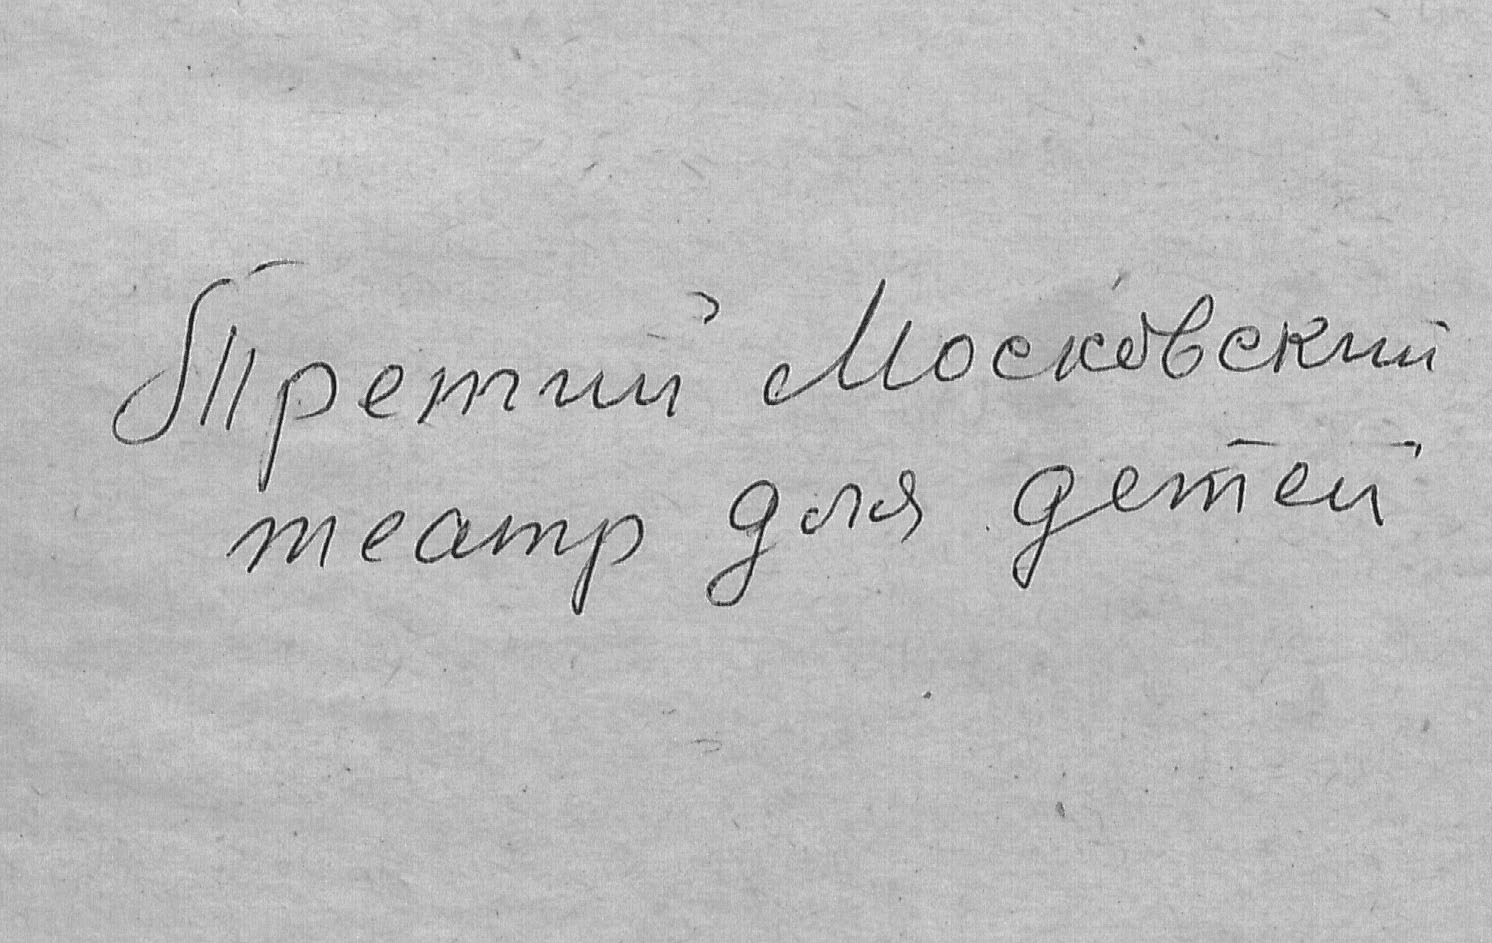 Третий Московский
театр для детей